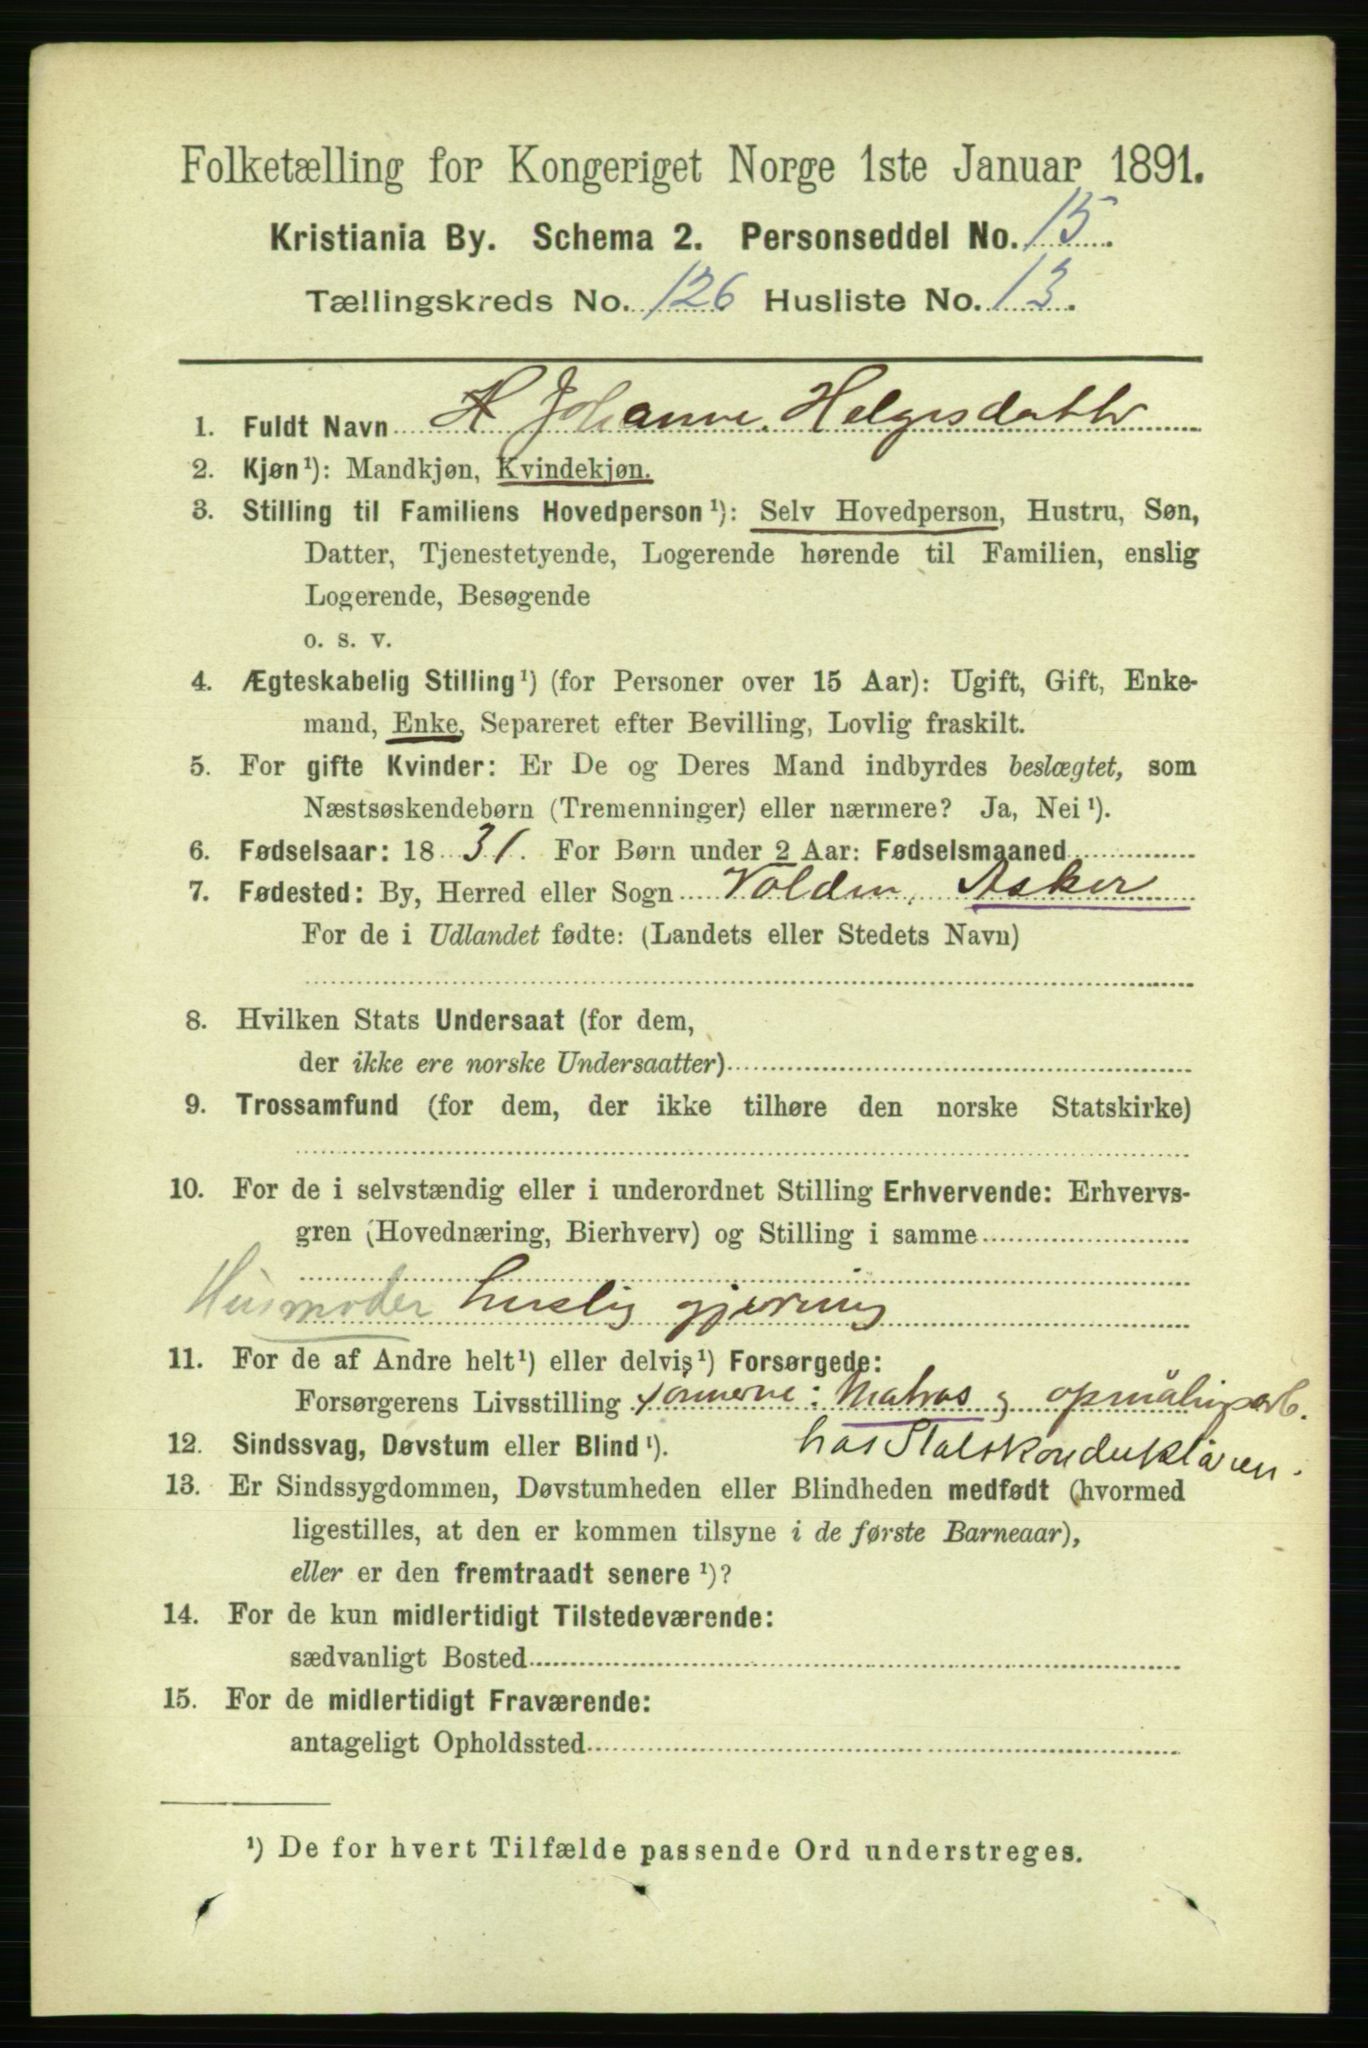 Folketælling for Kongeriget Norge 1ste Januar 1891.
Kristiania By. Schema 2. Personseddel No. 15.
Tællingskreds No. 126 Husliste No. 13.
1. Fuldt Navn H Johanne Helgesdatter
2. Kjøn¹): Mandkjøn, Kvindekjøn.
3. Stilling til Familiens Hovedperson¹): Selv Hovedperson, Hustru, Søn,
Datter, Tjenestetyende, Logerende hørende til Familien, enslig
Logerende, Besøgende
o. s. v.
4. Ægteskabelig Stilling¹) (for Personer over 15 Aar): Ugift, Gift, Enke-
mand, Enke, Separeret efter Bevilling, Lovlig fraskilt.
5. For gifte Kvinder: Er De og Deres Mand indbyrdes beslægtet, som
Næstsøskendebørn (Tremenninger) eller nærmere? Ja, Nei¹).
6. Fødselsaar: 1831. For Børn under 2 Aar: Fødselsmaaned
7. Fødested: By, Herred eller Sogn Volden, Asker
For de i Udlandet fødte: (Landets eller Stedets Navn)
8. Hvilken Stats Undersaat (for dem,
der ikke ere norske Undersaatter)
9. Trossamfund (for dem, der ikke tilhøre den norske Statskirke)
10. For de i selvstændig eller i underordnet Stilling Erhvervende: Erhvervs-
gren (Hovednæring, Bierhverv) og Stilling i samme
Husmoder huslig gjerning
11. For de af Andre helt¹) eller delvis¹) Forsørgede:
Forsørgerens Livsstilling sønnerne: Matros og opmålingsarb.
hos Statskonduktøren.
12. Sindssvag, Døvstum eller Blind¹).
13. Er Sindssygdommen, Døvstumheden eller Blindheden medfødt (hvormed
ligestilles, at den er kommen tilsyne i de første Barneaar),
eller er den fremtraadt senere¹)?
14. For de kun midlertidigt Tilstedeværende:
sædvanligt Bosted
15. For de midlertidigt Fraværende:
antageligt Opholdssted
¹) De for hvert Tilfælde passende Ord understreges.